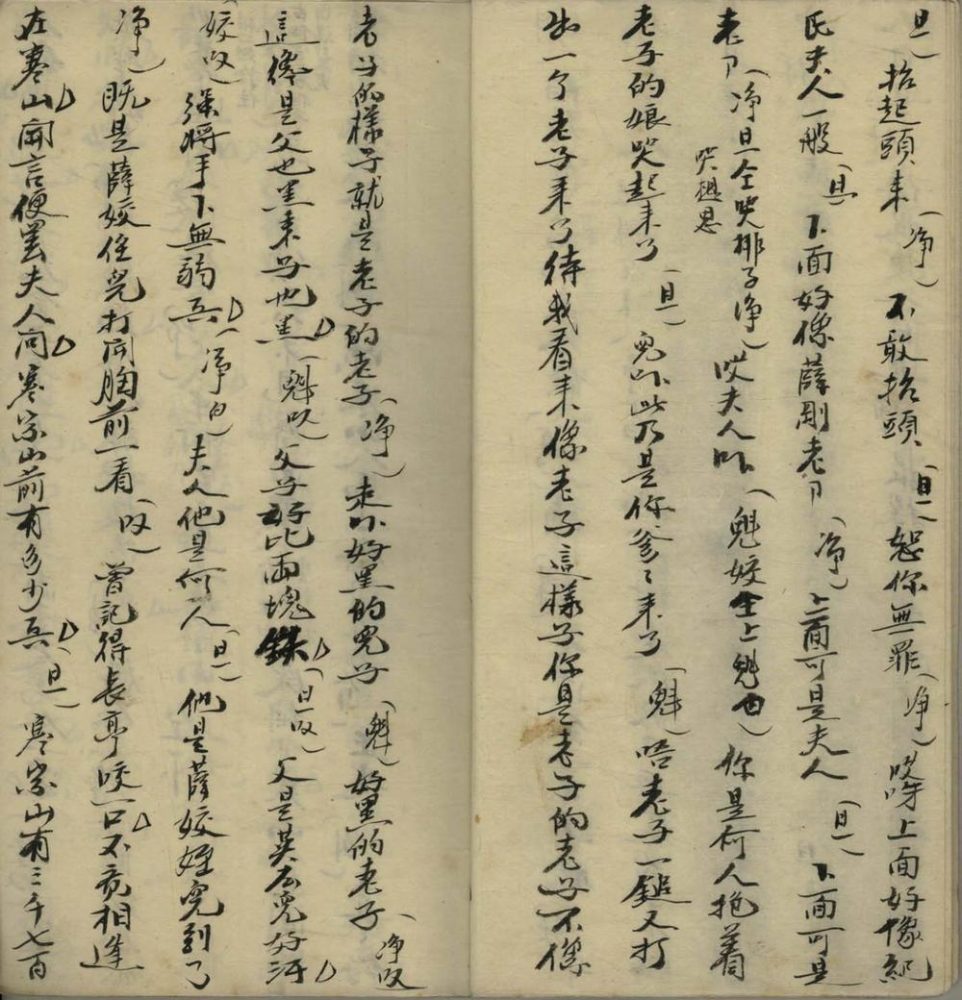 旦）抬起頭來（净）不敢抬頭（旦）恕你無罪（净）哎呀上面好像紀
氏夫人一般（旦）下面好像薛剛老卩（净）上面可是夫人（旦）下面可是
老卩（净旦仝哭排子净）哎夫人吓（魁姣仝上魁白）你是何人抱着
哭想思
老子的娘哭起來了（旦）兒吓此乃是你爹々來了（魁）唔老子一鎚又打
出一个老子來了待我看來像老子這樣子你是老子的老子不像
老子的樣子就是老子的老子（净）走吓好黑的兒子（魁）好黑的老子（净叹
這僗是父也黑來子也黑（魁叹）父子好比兩塊鉄（旦叹）父是英雄兒好汗
姣叹）強將手下無弱兵（净白）夫人他是何人（旦）他是薛姣姪兒到了
净）既是薛姣侄兒打開胸前一看（叹）曾記得長亭咬一口不竟相逢
在寒山聞言便罢夫人問寒宗山前有多少兵（旦）寒宗山有三千七百